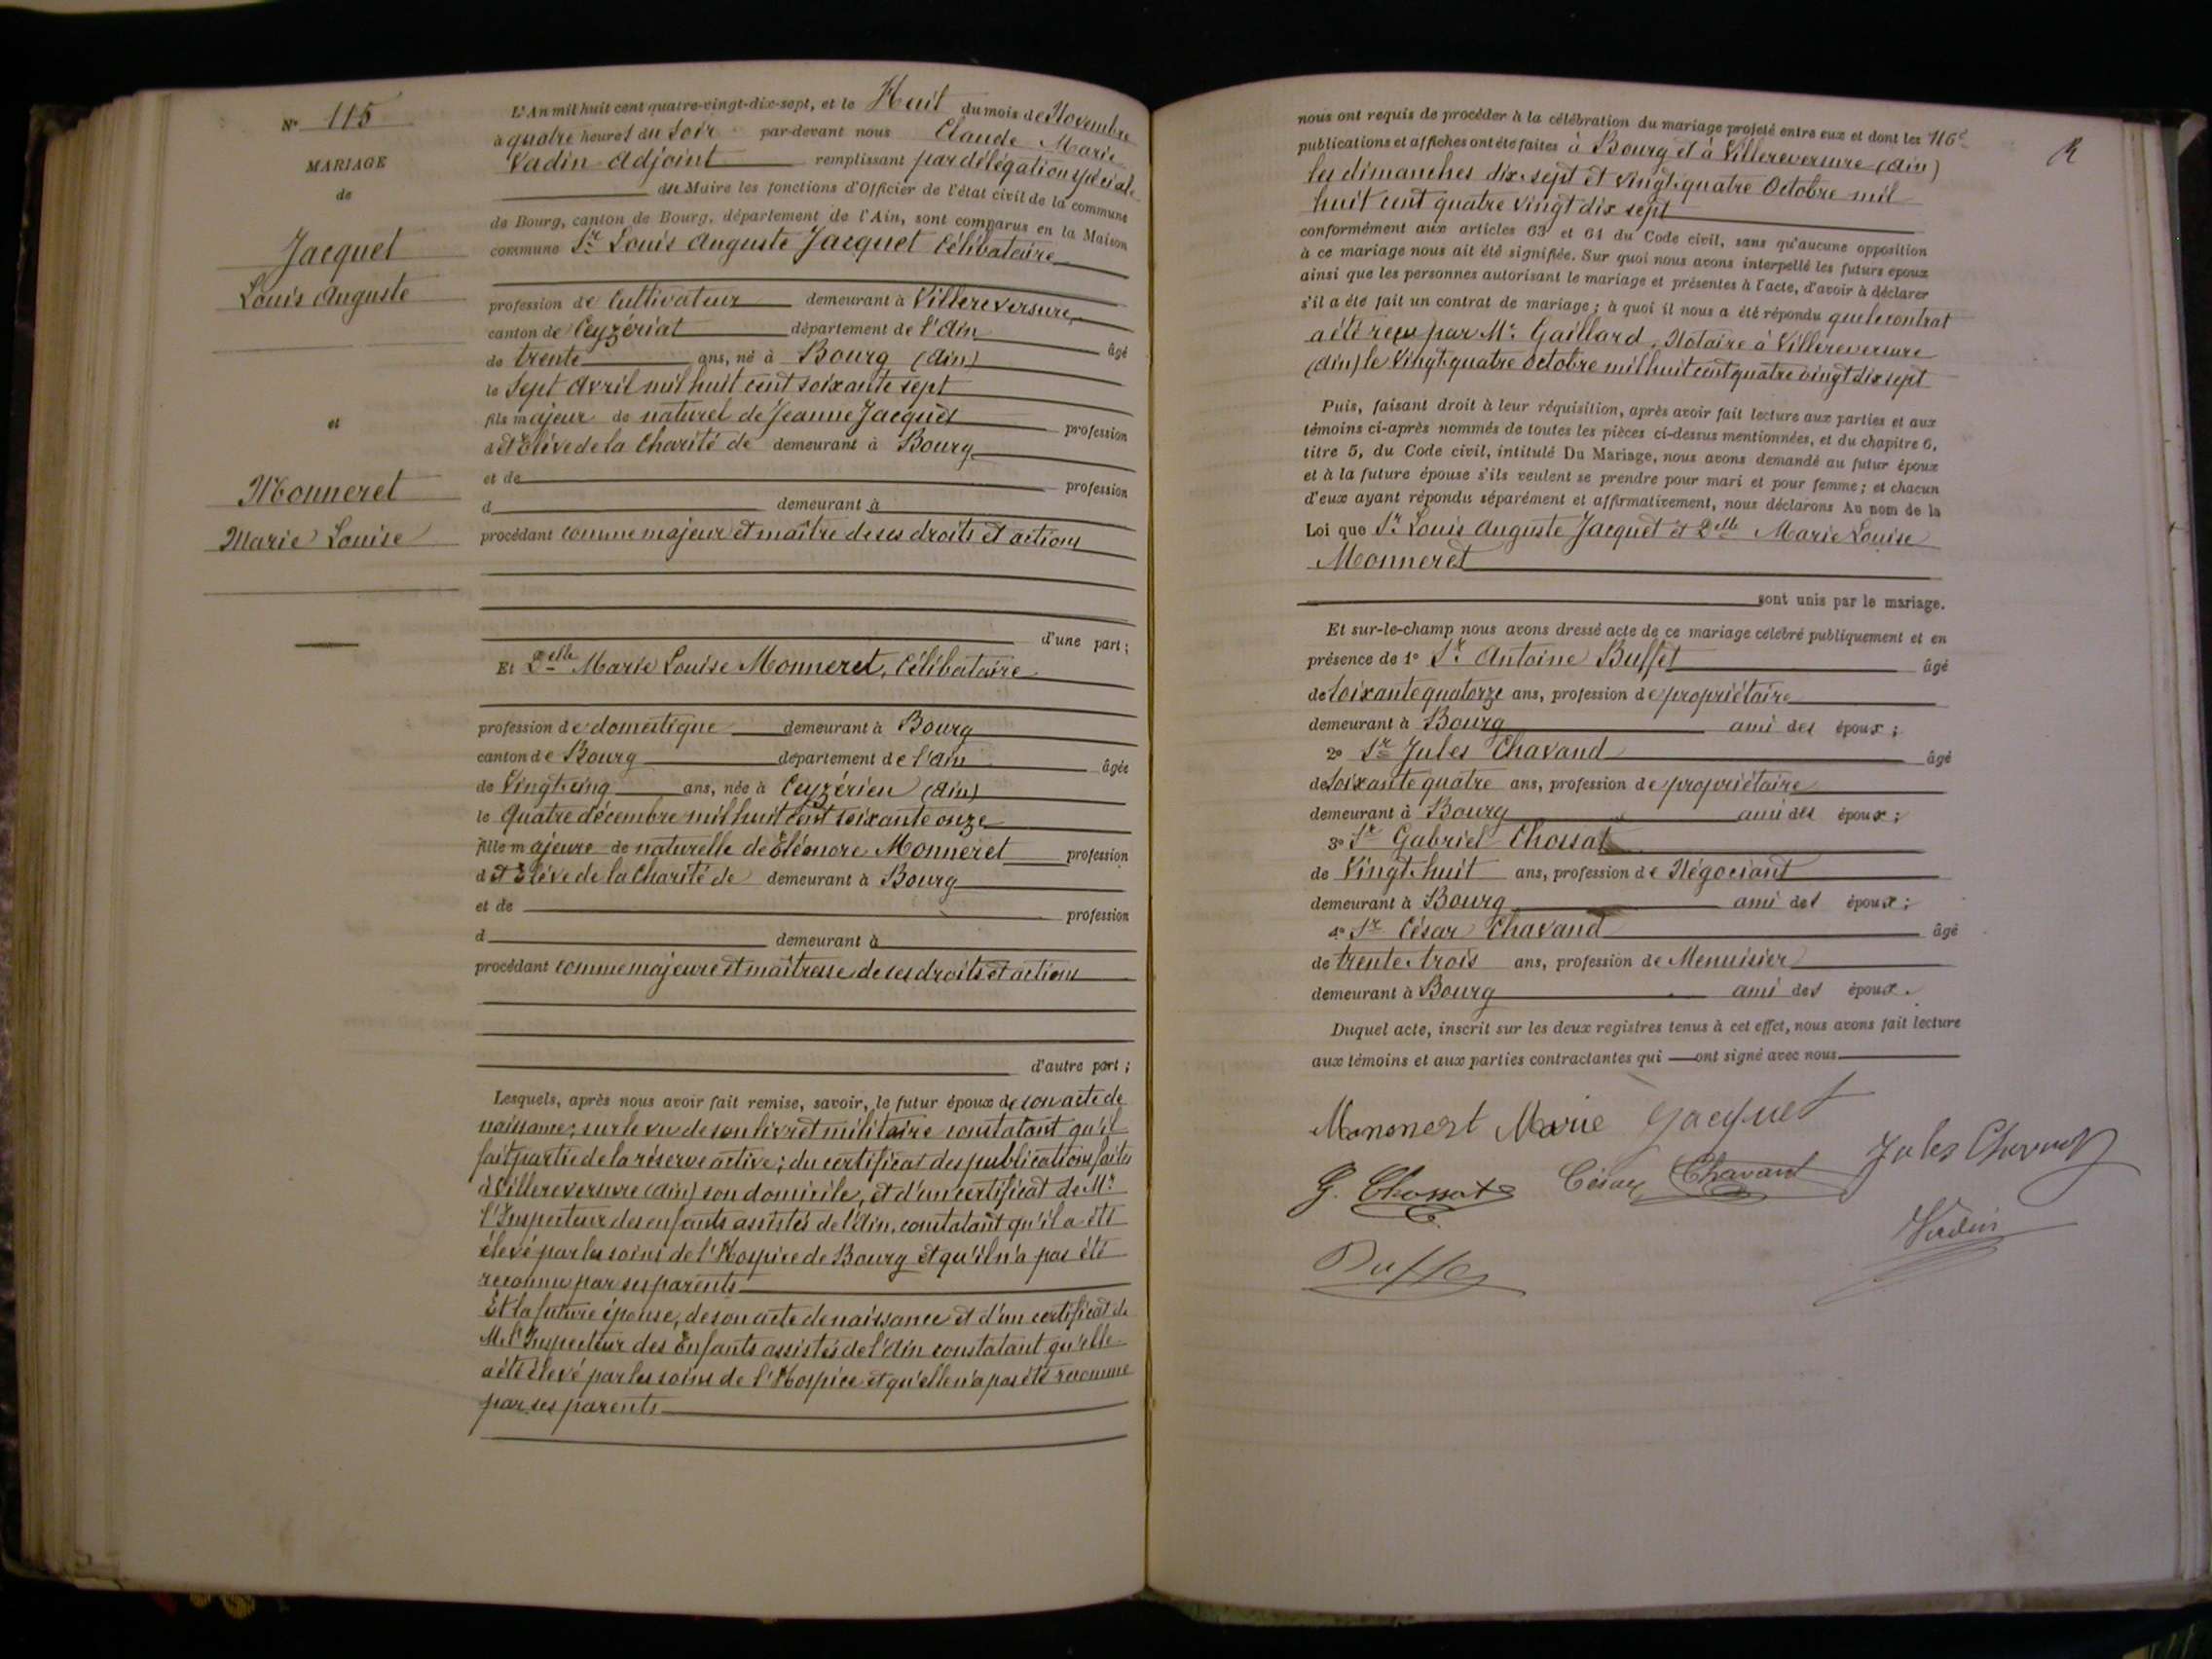 N° 115
MARIAGE
de
Jacquet
Louis Auguste
et
Monneret
Marie Louise
L'An mil huit cent quatre-vingt-dix-sept, et le Huit du mois de Novembre
à quatre heures du soir par-devant nous Claude Marie
Vadin Adjoint remplissant par délégation spéciale
du Maire les fonctions d'Officier de l'état civil de la commune
de Bourg, canton de Bourg, département de l'Ain, sont comparus en la Maison
commune Sr Louis Auguste Jacquet Célibataire
profession de Cultivateur demeurant à Villereversure,
canton de Ceyzériat département de l'Ain âgé
de trente ans, né à Bourg (Ain)
le Sept Avril mil huit cent soixante sept
fils majeur de naturel de Jeanne Jacquet profession
d et Elève de la Charité de demeurant à Bourg
et de profession
d demeurant à
procédant comme majeur et maître de ses droits et actions
d'une part ;
Et Delle Marie Louise Monneret, Célibataire
profession de domestique demeurant à Bourg
canton de Bourg département de l'Ain âgée
de Vingt cinq ans, née à Ceyzérieu (Ain)
le Quatre décembre mil huit cent soixante onze
fille majeure de naturelle de Eléonore Monneret profession
d et Elève de la Charité de demeurant à Bourg
et de profession
d demeurant à
procédant comme majeure et maîtresse de ses droits et actions
d'autre part ;
Lesquels, après nous avoir fait remise, savoir, le futur époux de son acte de
naissance ; sur le vu de son livret militaire constatant qu'il
fait partie de la réserve active ; du certificat des publications faites
à Villereversure (Ain) son domicile, et d'un certificat de Mr
l'Inspecteur des enfants assistés de l'Ain, constatant qu'il a été
élevé par les soins de l'Hospice de Bourg et qu'il n'a pas été
reconnu par ses parents
Et la future épouse, de son acte de naissance et d'un certificat de
M. l'Inspecteur des Enfants assistés de l'Ain constatant qu'elle
a été élevé par les soins de l'Hospice et qu'elle n'a pas été reconnue
par ses parents
nous ont requis de procéder à la célébration du mariage projeté entre eux et dont les
publications et affiches ont été faites à Bourg et à Villereversure (Ain)
les dimanches dix-sept et vingt-quatre Octobre mil
huit cent quatre vingt dix sept
conformément aux articles 63 et 64 du Code civil, sans qu'aucune opposition
à ce mariage nous ait été signifiée. Sur quoi nous avons interpellé les futurs époux
ainsi que les personnes autorisant le mariage et présentes à l'acte, d'avoir à déclarer
s'il a été fait un contrat de mariage ; à quoi il nous a été répondu que le contrat
a été reçu par Me Gaillard, Notaire à Villereversure
(Ain) le Vingt quatre Octobre mil huit cent quatre vingt dix sept
Puis, faisant droit à leur réquisition, après avoir fait lecture aux parties et aux
témoins ci-après nommés de toutes les pièces ci-dessus mentionnées, et du chapitre 6,
titre 5, du Code civil, intitulé Du Mariage, nous avons demandé au futur époux
et à la future épouse s'ils veulent se prendre pour mari et pour femme ; et chacun
d'eux ayant répondu séparément et affirmativement, nous déclarons Au nom de la
Loi que Sr Louis Auguste Jacquet et Delle Marie Louise
Monneret
sont unis par le mariage.
Et sur-le-champ nous avons dressé acte de ce mariage célébré publiquement et en
présence de 1° Sr Antoine Buffet âgé
de Soixante quatorze ans, profession de propriétaire
demeurant à Bourg ami des époux ;
2° Sr Jules Chavand âgé
de Soixante quatre ans, profession de propriétaire
demeurant à Bourg ami des époux ;
3° Sr Gabriel Chossat
de Vingt-huit ans, profession de Négociant
demeurant à Bourg ami des époux ;
4° Sr César Chavand âgé
de trente trois ans, profession de Menuisier
demeurant à Bourg ami des époux.
Duquel acte, inscrit sur les deux registres tenus à cet effet, nous avons fait lecture
aux témoins et aux parties contractantes qui ont signé avec nous
Marie Jacquet
G. Chossat César Chavant Jules
Vadin